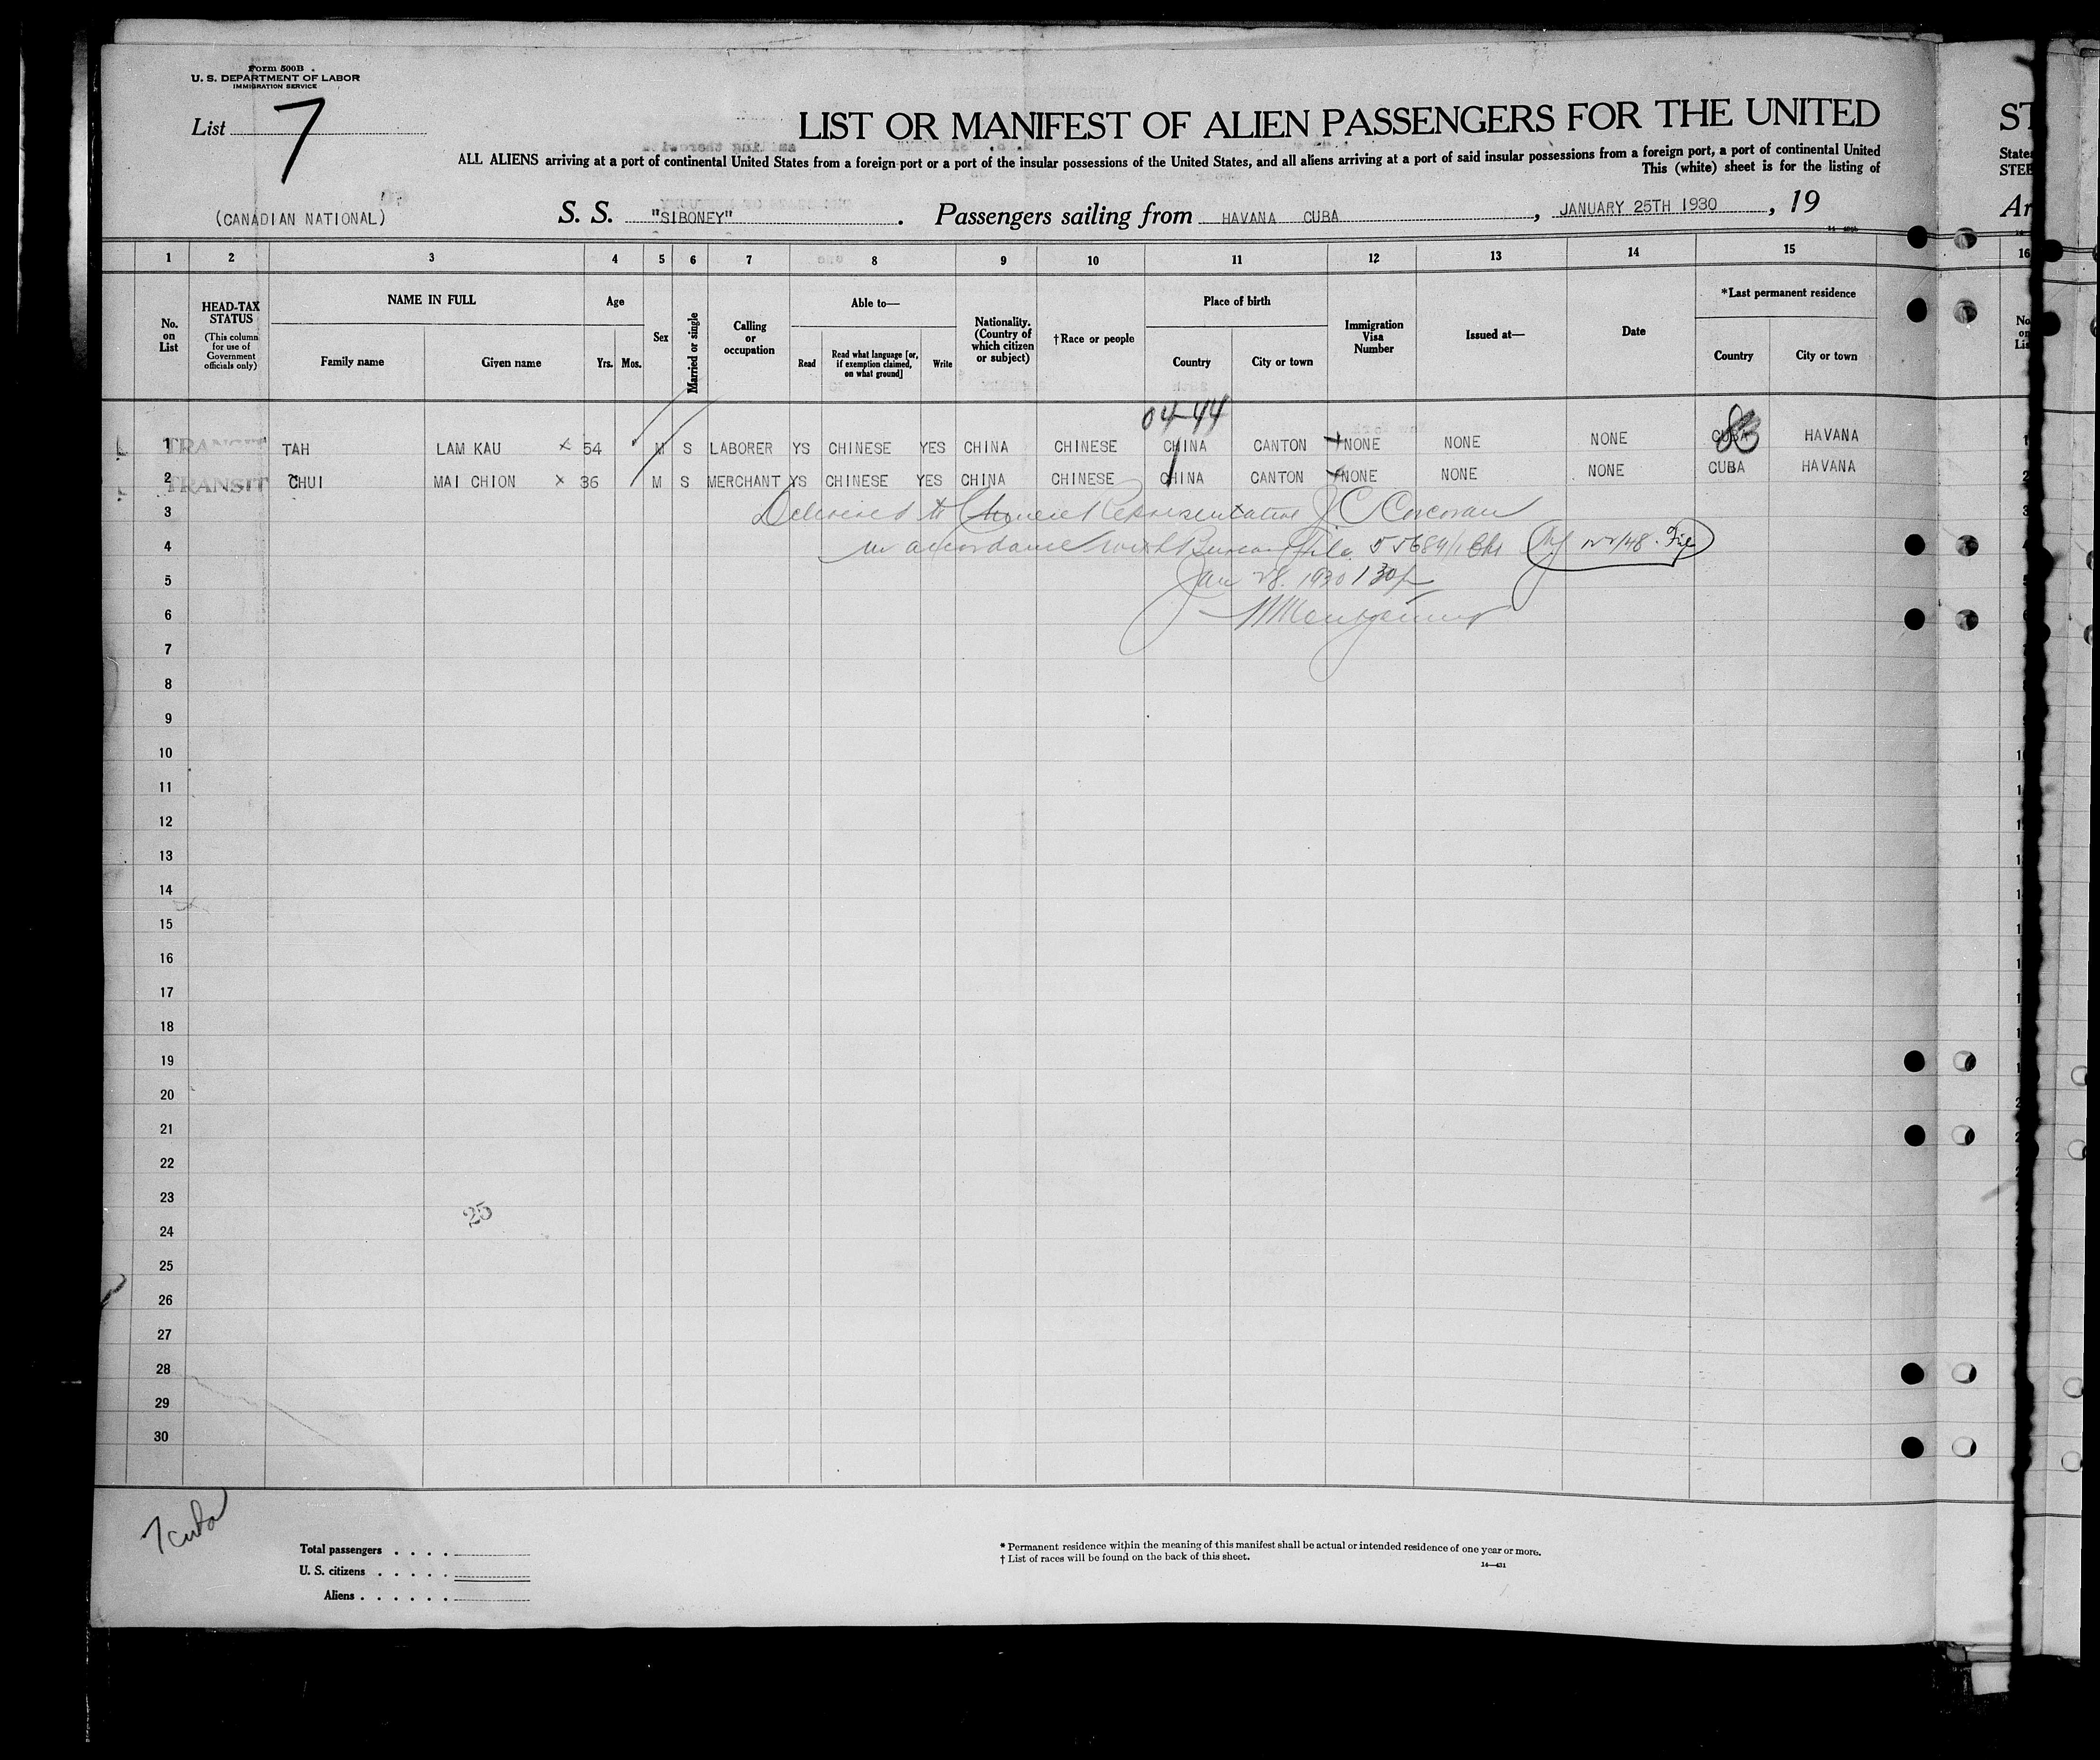 Form 500B
U. S. DEPARTMENT OF LABOR
IMMIGRATION SERVICE
List 7
LIST OR MANIFEST OF ALIEN PASSENGERS FOR THE UNITED
ALL ALIENS arriving at a port of continental United States from a foreign port or a port of the insular possessions of the United States, and all aliens arriving at a port of said insular possessions from a foreign port, a port of continental United
This (white) sheet is for the listing of
(CANADIAN NATIONAL) S. S. "SIBONEY". Passengers sailing from HAVANA CUBA, JANUARY 25TH 1930, 19
1 2 3 4 5 6 7 8 9 10 11 12 13 14 15 16
No. on List
HEAD-TAX STATUS
(This column for use of Government officials only)
NAME IN FULL
Family name Given name
Age
Yrs. Mos.
Sex
Married or single
Calling or occupation
Able to—
Read
Read what language [or, if exemption claimed, on what ground]
Write
Nationality. (Country of which citizen or subject)
†Race or people
Place of birth
Country City or town
Immigration Visa Number
Issued at—
Date
*Last permanent residence
Country City or town
04-44
1 TRANSIT TAH LAM KAU x 54 M S LABORER YS CHINESE YES CHINA CHINESE CHINA CANTON NONE NONE NONE CUBA HAVANA
2 TRANSIT CHUI MAI CHION x 36 M S MERCHANT YS CHINESE YES CHINA CHINESE CHINA CANTON NONE NONE NONE CUBA HAVANA
3 Delivered to Chinese Representative J C Corcoran
4 in accordance with Bureau File
5 Jan 28. 1930 1 30p
6
7
8
9
10
11
12
13
14
15
16
17
18
19
20
21
22
23
25
24
25
26
27
28
29
30
Total passengers
U. S. citizens
Aliens
* Permanent residence within the meaning of this manifest shall be actual or intended residence of one year or more.
† List of races will be found on the back of this sheet.
14—431